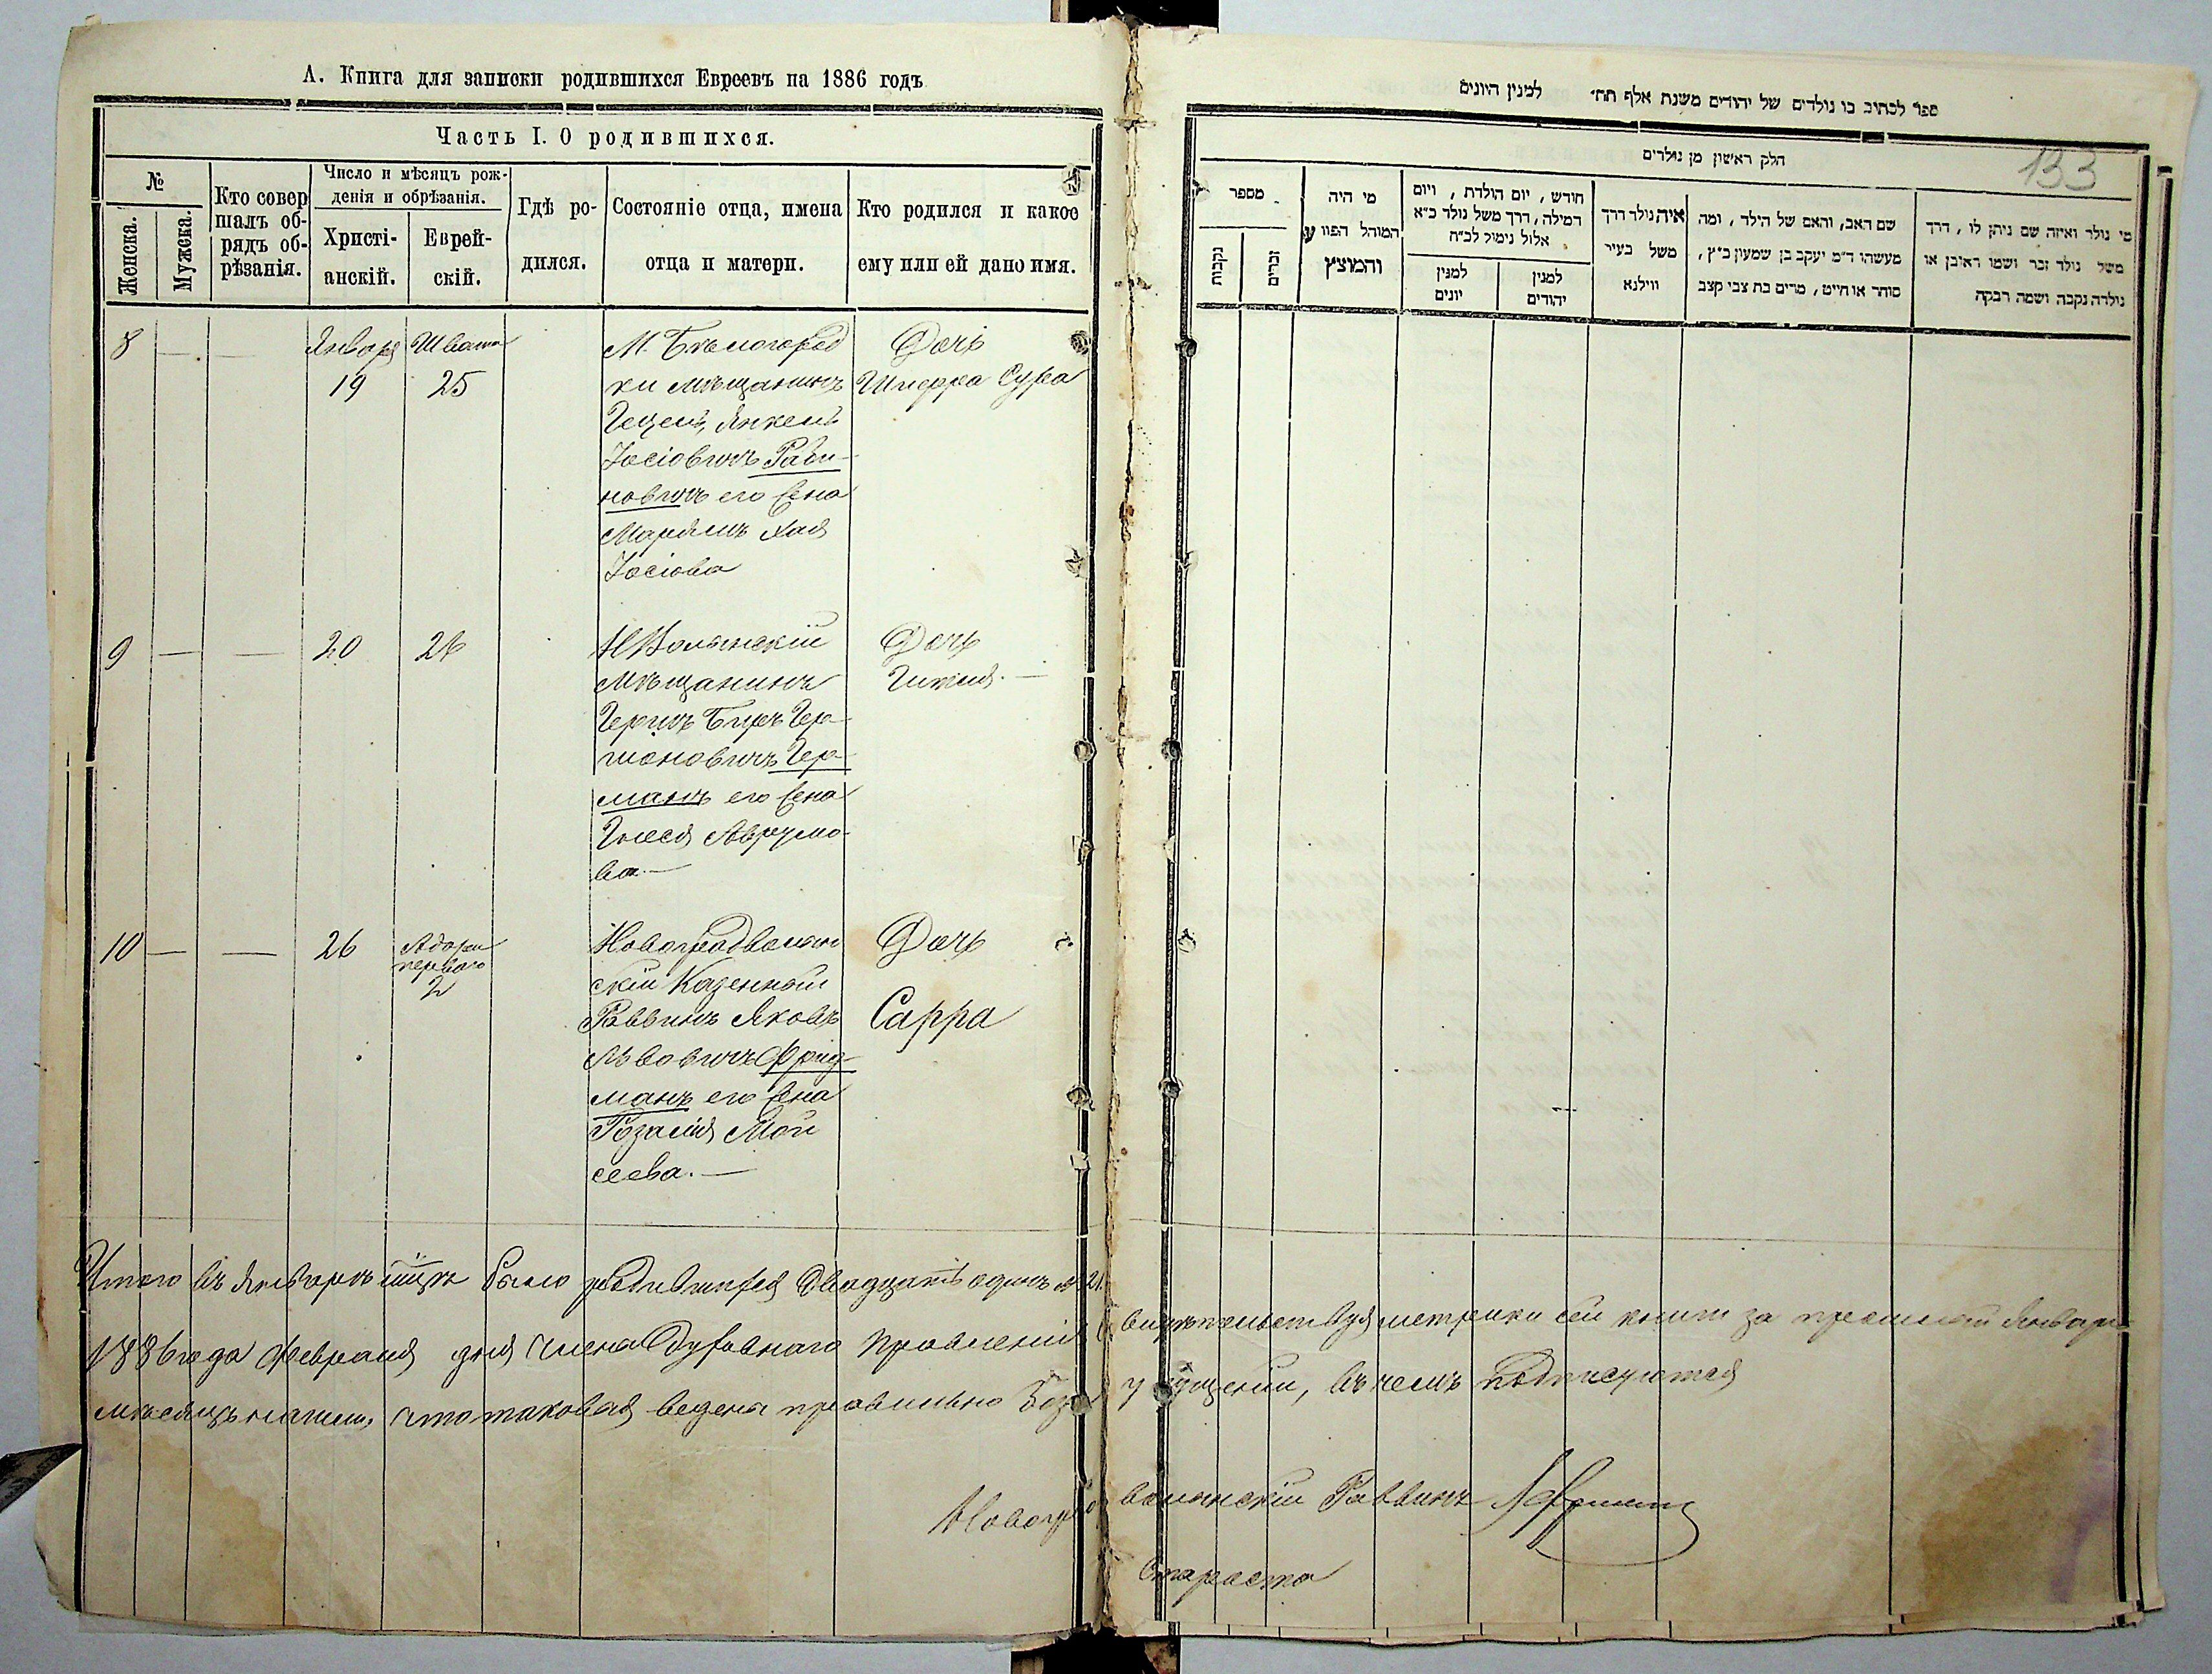 А. Книга для записки родившихся Евреевъ на 1886 годъ
Часть I. О родившихся.
№
Женска.
Мужска.
Кто совер
шалъ об-
рядъ об-
рѣзанія.
Число и мѣсяцъ рож-
денія и обрѣзанія.
Христі-
анскій.
Еврей-
скій.
Гдѣ ро-
дился.
Состояніе отца, имена
отца и матери.
Кто родился и какое
ему или ей дано имя.
8 — —
Январь
19
Швата
25
М. Бѣлогород
ки мѣщанинъ
Гецель Янкель
Іосіовичъ Раби-
новичъ его жена
Маріямъ Хая
Іосіова
Дочь
Шперра Сура
9 — — 20 26
НВолынскій
мѣщанинъ
Гершъ Беръ Гер-
шоновичъ Гер-
манъ его жена
Аврумо-
ва.—
Дочь
10 — — 26
Адара
перваго
2
Новоградволын
скій Казенный
Раввинъ Яковъ
Львовичъ Фрид-
манъ его жена
Розалія Мои
сеева.—
Дочь
Сарра
Итого въ Январѣ мцѣ было родившихся двадцать одинъ № 21.
1886 года Февраля дня члена Духовнаго Правленія свидѣтельствуя метрики сей книги за прошлый Январь
мѣсяцъ нашли, что таковая ведена правильно безъ упущеній, въ чемъ подписуются
Новоградволынскій Раввинъ
Староста
133
ספר לכתוב בו נולדים של יהודים משנת אלף תח׳ למנין היונים
חלק ראשון מן נולדים
מספר
נקבות
זכרים
מי היה
המוהל הפורע
והמוצץ
חודש , יום הולדת , ויום
המילה, דרך משל נולד כ״א
אלול נימול לכ״ח
למנין
יונים
למנין
יהודים
איה נולד דרך
משל בעיר
ווילנא
שם האב, והאם של הילד , ומה
מעשהו ד״מ יעקב בן שמעון כ״ץ ,
סוחר או חייט , מרים בת צבי קצב
מי נולד ואיזה שם ניתן לו , דרך
משל נולד זכר ושמו ראובן או
נולדה נקבה ושמה רבקה